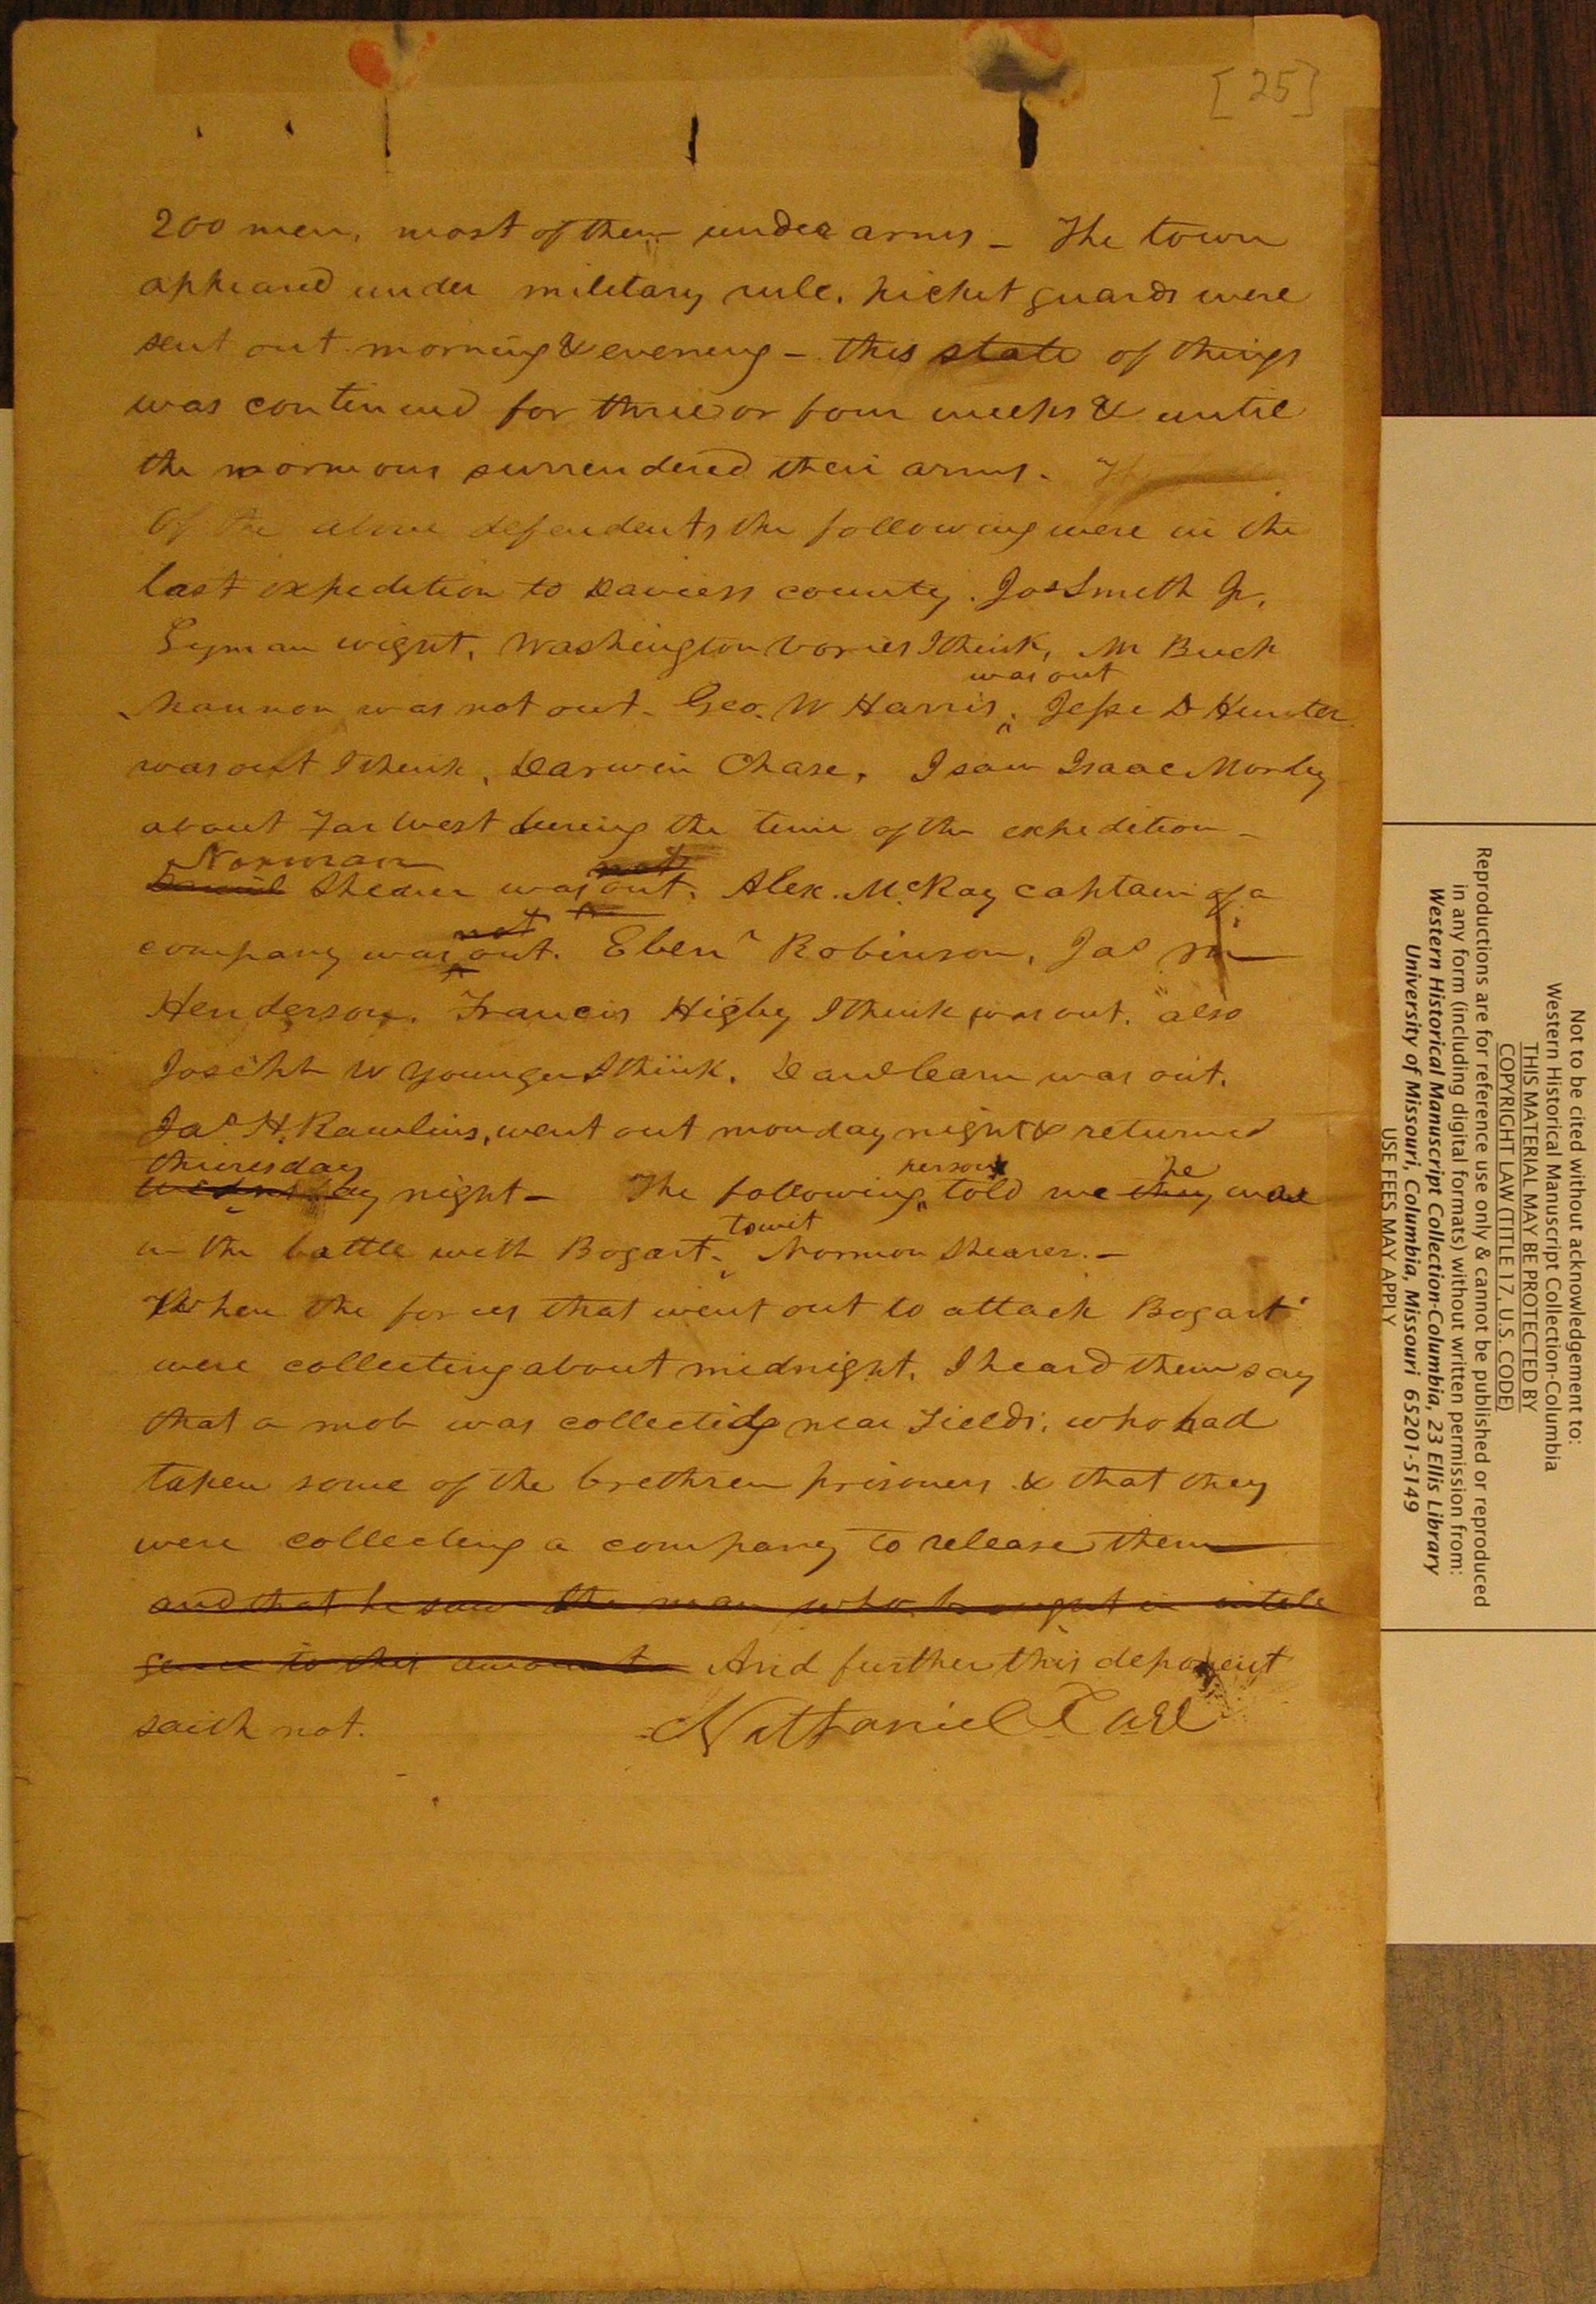 [25]
200 men, most of them under arms - The town
appeared under military rule. picket guards were
sent out morning & evening - this state of things
was continued for three or four weeks & until
the mormons surrendered their arms.
Of the above defendents the following were in the
last expedition to Daviess county. Jos Smith Jr,
Lyman wight, Washington Vories I think, M Buch
hannon was not out - Geo. W Harris was out. Jesse D Hunter
was out I think, Darwin Chase, I saw Isaac Morley
about Far West during the time of the expedition -
Norman Shearer was not out, Alex. McRay captain of a
company was not out. Ebenr Robinson, Jas M
Henderson. Francis Higby I think was out. also
Joseph W Younger I think. D carn was out.
Jas. H. Rawlins, went out monday night & returned
thursday
wednesday night - The following person told me he was
in the battle with Bogart, towit Norman Shearer. -
When the forces that went out to attack Bogart
were collecting about midnight, I heard them say
that a mob was collecting near Fields, who had
taken some of the brethren prisoners & that they
were collecting a company to release them
and that he saw the man who brought in intele
gence to this amount And further this deponent
saith not. Nathaniel Carr
Not to be cited without acknowledgement to:
Western Historical Manuscript Collection-Columbia
THIS MATERIAL MAY BE PROTECTED BY
COPYRIGHT LAW (TITLE 17, U.S. CODE)
Reproductions are for reference use only & cannot be published or reproduced
in any form (including digital formats) without written permission from:
Western Historical Manuscript Collection-Columbia, 23 Ellis Library
University of Missouri, Columbia, Missouri 65201-5149
USE FEES MAY APPLY